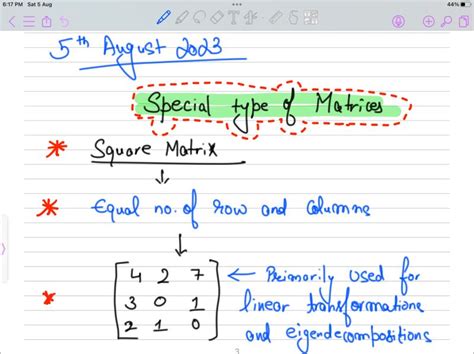 6:17 PM Sat 5 Aug 44%
5th August 2023
Special type of Matrices
* Square Matrix
↓
* Equal no. of row and columns
↓
4 2 7 ← Primarily used for
* 3 0 1 linear transformations
2 1 0 and eigendecompositions
3